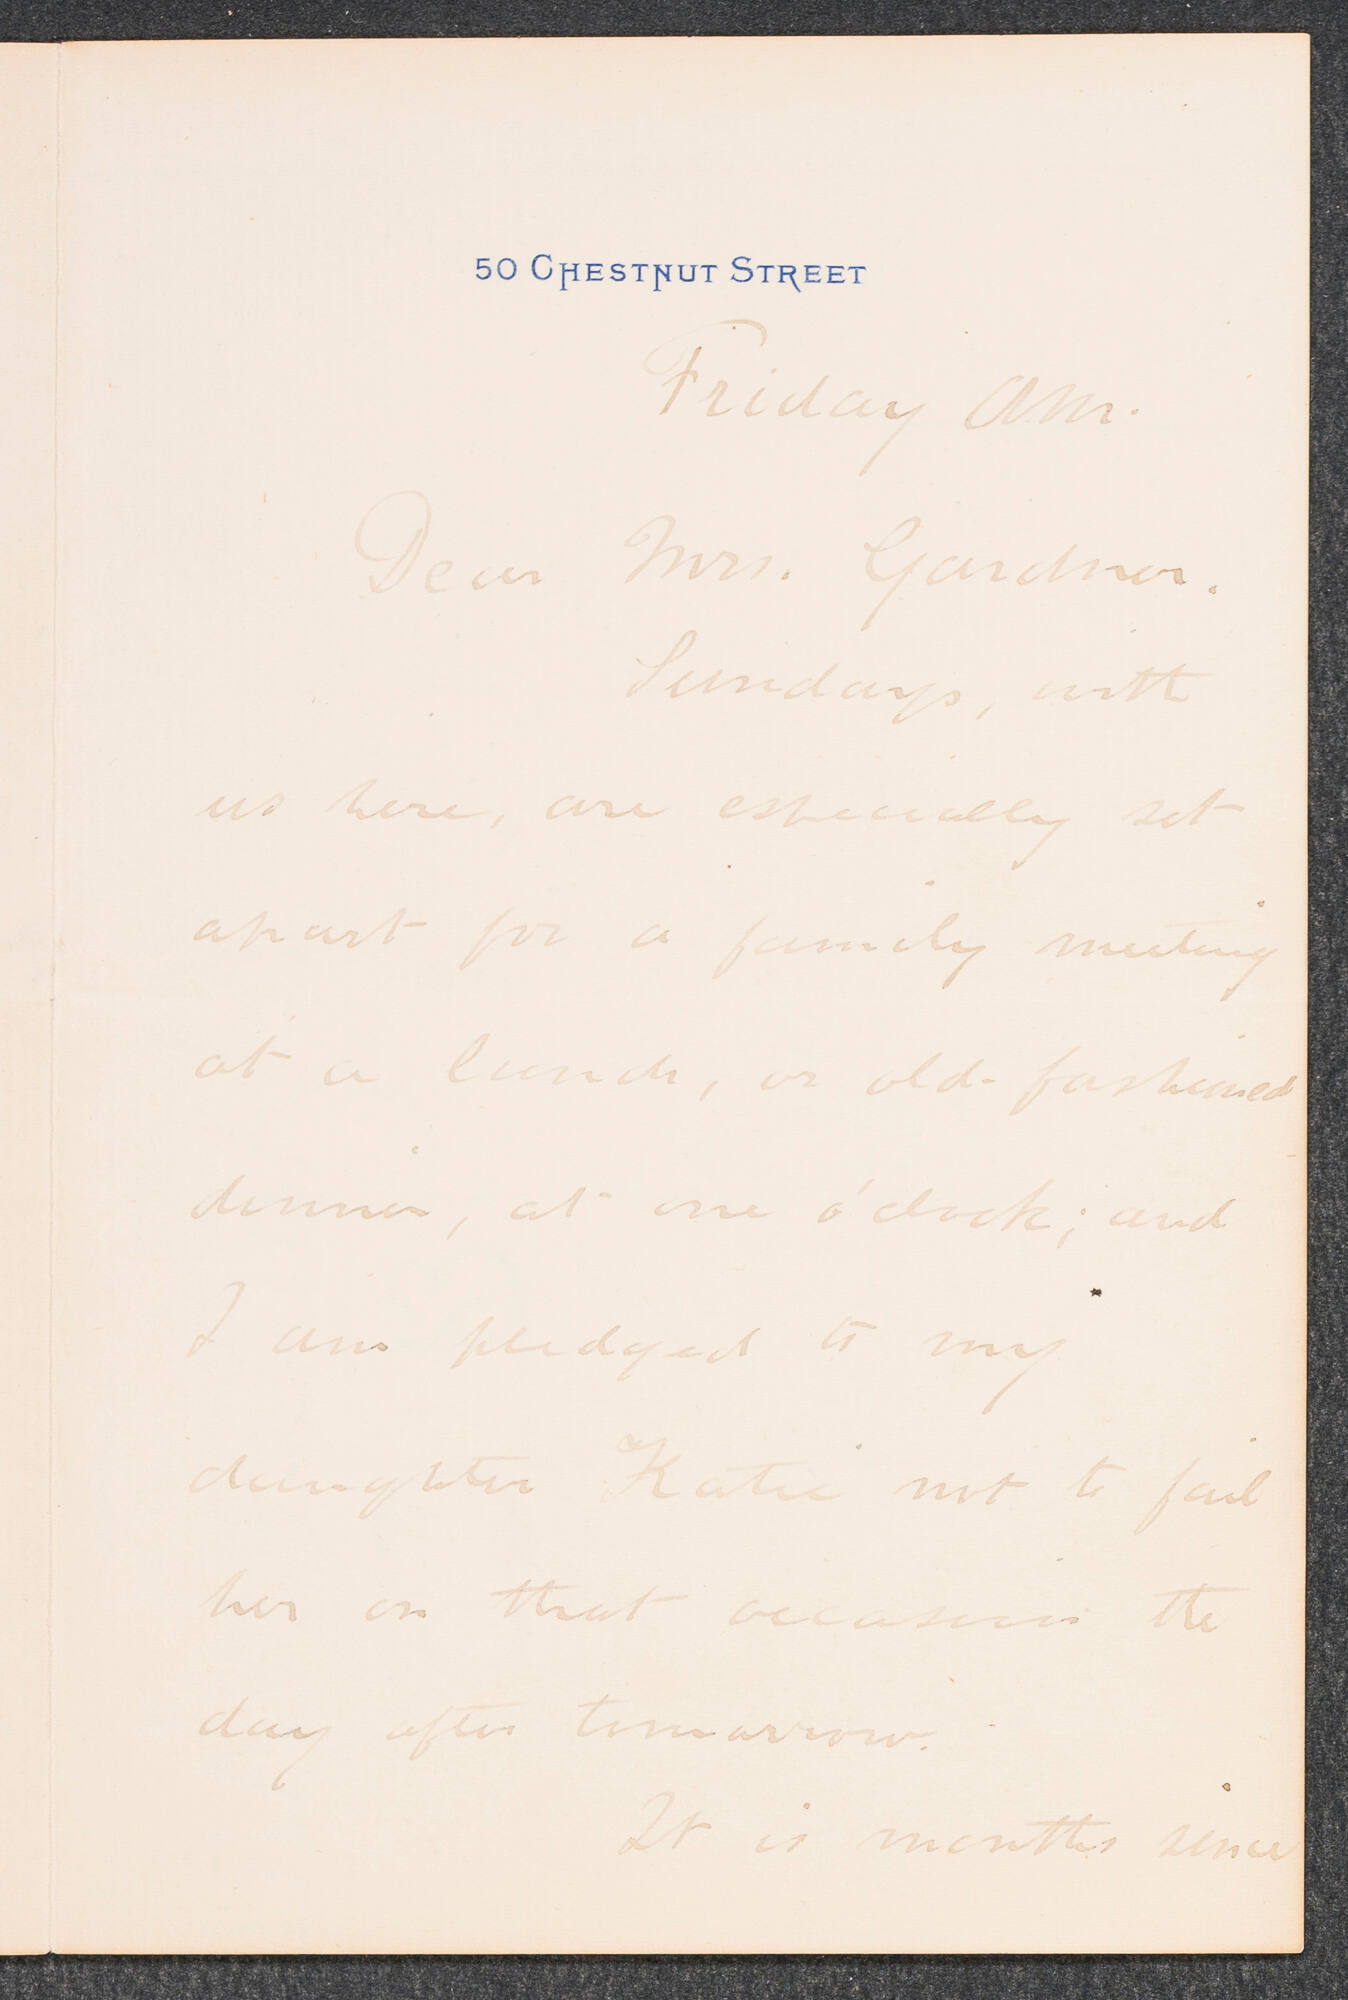 50 CHESTNUT STREET
Friday AM.
Dear Mrs. Gardner.
Sundays, with
us here, are especially set
apart for a family meeting
at a lunch, or old-fashioned
dinner, at one o'clock; and
I am pledged to my
daughter Katie not to fail
her on that occasion the
day after tomorrow.
It is months since